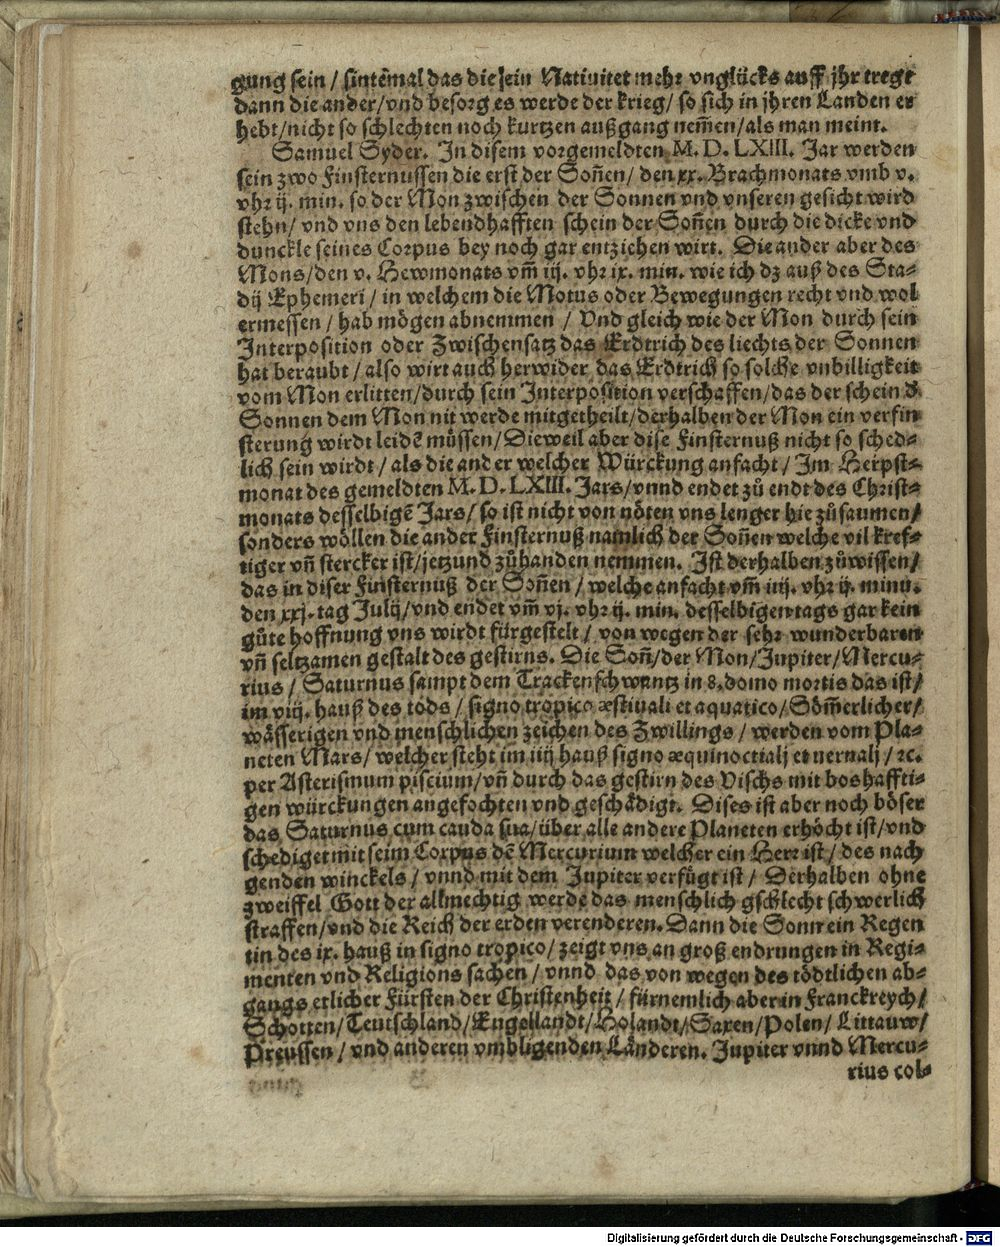 gung sein / sintemal das die sein Natiuitet mehr vnglücks auff jhr tregt
dann die ander/vnd besorg es werde der krieg/ so sich in jhren Landen er
hebt/nicht so schlechten noch kurtzen außgang nem̃en/als man meint.
Samuel Syder. In disem vorgemeldten M. D. LXIII. Jar werden
sein zwo Finsternussen die erst der Son̄en/ den xx. Brachmonats vmb v.
vhr ij. min. so der Mon zwischen der Sonnen vnd vnseren gesicht wird
stehn/ vnd vns den lebendhafften schein der Son̄en durch die dicke vnd
dunckle seines Corpus bey noch gar entziehen wirt. Die ander aber des
Mons/den v. Hewmonats vm̄ iij. vhr ix. min. wie ich dz auß des Sta-
dij Ephemeri / in welchem die Motus oder Bewegungen recht vnd wol
ermessen / hab mögen abnemmen / Vnd gleich wie der Mon durch sein
Interposition oder Zwischensatz das Erdtrich des liechts der Sonnen
hat beraubt / also wirt auch herwider das Erdtrich so solche vnbilligkeit
vom Mon erlitten/durch sein Interposition verschaffen/das der schein d̕
Sonnen dem Mon nit werde mitgetheilt/derhalben der Mon ein verfin
sterung wirdt leidē müssen/Dieweil aber dise Finsternuß nicht so sched-
lich sein wirdt / als die ander welcher Würckung anfacht / Im Herpst-
monat des gemeldten M. D. LXIII. Jars/vnnd endet zů endt des Christ-
monats desselbigē Jars/ so ist nicht von nöten vns lenger hie zůsaumen/
sonders wöllen die ander Finsternuß namlich der Son̄en welche vil kref-
tiger vn̄ stercker ist/jetzund zůhanden nemmen. Ist derhalben zůwissen/
das in diser Finsternuß der Son̄en / welche anfacht vm̄ iiij. vhr ij. minu.
den xxj. tag Julij/vnd endet vm̄ vj. vhr ij. min. desselbigen tags gar kein
gůte hoffnung vns wirdt fürgestelt / von wegen der sehr wunderbaren
vn̄ seltzamen gestalt des gestirns. Die Son̄/der Mon/Jupiter/Mercu-
rius / Saturnus sampt dem Trackenschwantz in 8. domo mortis das ist/
im viij. hauß des tods / signo tropico æstiuali et aquatico/Söm̄erlicher/
wässerigen vnd menschlichen zeichen des Zwillings / werden vom Pla-
neten Mars/ welcher steht im iiij hauß signo æquinoctialj et vernalj / ꝛc.
per Asterismum piscium/vn̄ durch das gestirn des Vischs mit boshaffti-
gen würckungen angefochten vnd geschädigt. Dises ist aber noch böser
das Saturnus cum cauda sua/über alle andere Planeten erhöcht ist/vnd
schediget mit seim Corpus dē Mercurium welcher ein Herr ist / des nach
genden winckels / vnnd mit dem Jupiter verfügt ist / Derhalben ohne
zweiffel Gott der allmechtig werde das menschlich gschlecht schwerlich
straffen/vnd die Reich der erden verenderen. Dann die Sonn ein Regen
tin des ix. hauß in signo tropico/ zeigt vns an groß endrungen in Regi-
menten vnd Religions sachen / vnnd das von wegen des tödtlichen ab-
gangs etlicher Fürsten der Christenheit / fürnemlich aber in Franckreych/
Schotten/Teutschland/Engellandt/Holandt/Saxen/Polen/ Littauw/
Preussen / vnd anderen vmbligenden Länderen. Jupiter vnnd Mercu-
rius col-
Digitalisierung gefördert durch die Deutsche Forschungsgemeinschaft - DFG